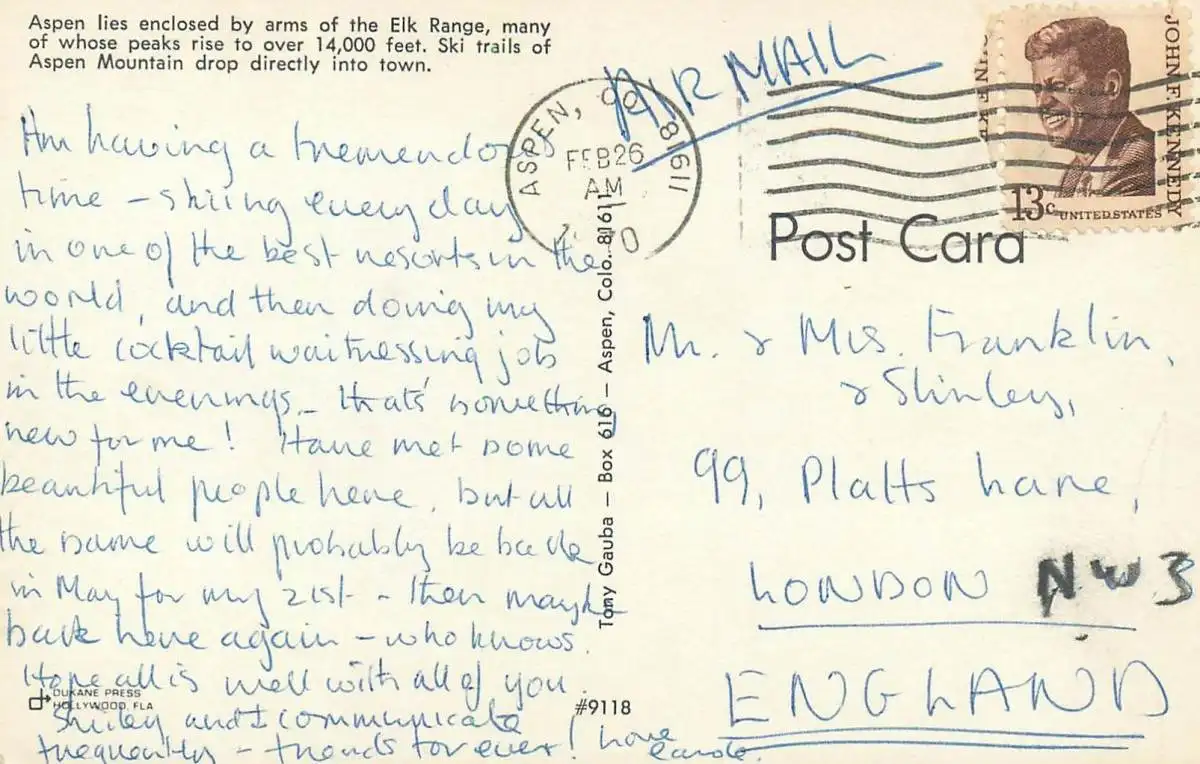 Aspen lies enclosed by arms of the Elk Range, many
of whose peaks rise to over 14,000 feet. Ski trails of
Aspen Mountain drop directly into town.
Am having a tremendous
time - skiing every day
in one of the best resorts in the
world, and then doing my
little cocktail waitressing job
in the evenings - that's something
new for me! Have met some
beautiful people here, but all
the same will probably be back
in May for my 21st - then maybe
back here again - who knows.
Hope all is well with all of you.
Shirley and I communicate
frequently - friends for ever! Love
Carole.
DUKANE PRESS
HOLLYWOOD, FLA
#9118
Tony Gauba — Box 616 — Aspen, Colo. 81611
ASPEN, CO 81611
FEB 26
AM
AIR MAIL
JOHN F. KENNEDY
13c UNITED STATES
Post Card
Mr. & Mrs. Franklin,
& Shirley,
99, Platts Lane,
LONDON NW3
ENGLAND